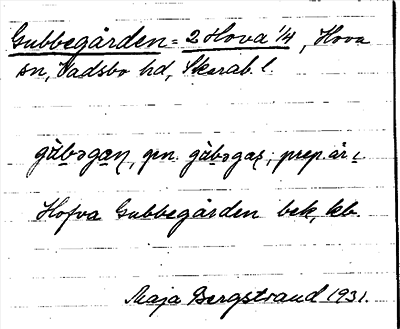 Gubbegården = 2 Hova 1/4, Hova
sn, Vadsbo hd, Skarab. l.
gùbəgan, gen. gùbəgas; prep. är i
Hofva Gubbegården bek, kb.
Maja Bergstrand 1931.